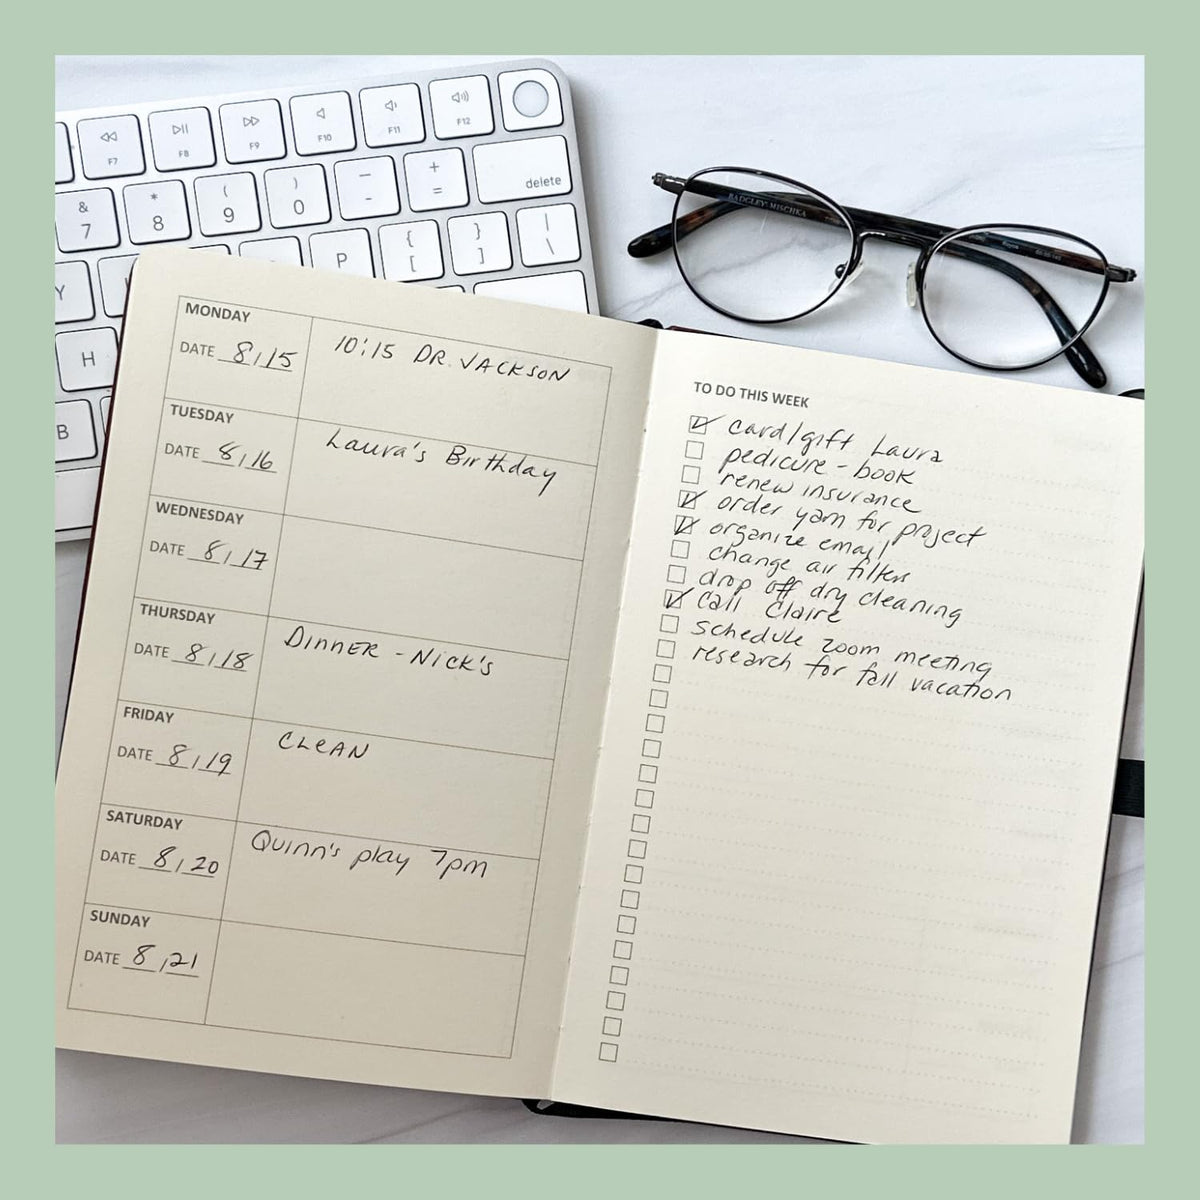 F7
F8
F9
F10
F11
F12
& 7
* 8
( 9
) 0
— -
+ =
delete
Y
P
{ [
} ]
| \
H
B
BADGLEY MISCHKA
MONDAY
DATE 8/15
10:15 DR. JACKSON
TUESDAY
DATE 8/16
Laura's Birthday
WEDNESDAY
DATE 8/17
THURSDAY
DATE 8/18
DINNER - NICK'S
FRIDAY
DATE 8/19
CLEAN
SATURDAY
DATE 8/20
Quinn's play 7pm
SUNDAY
DATE 8/21
TO DO THIS WEEK
card/gift Laura
pedicure - book
renew insurance
order yarn for project
organize email
change air filters
drop off dry cleaning
call Claire
schedule zoom meeting
research for fall vacation